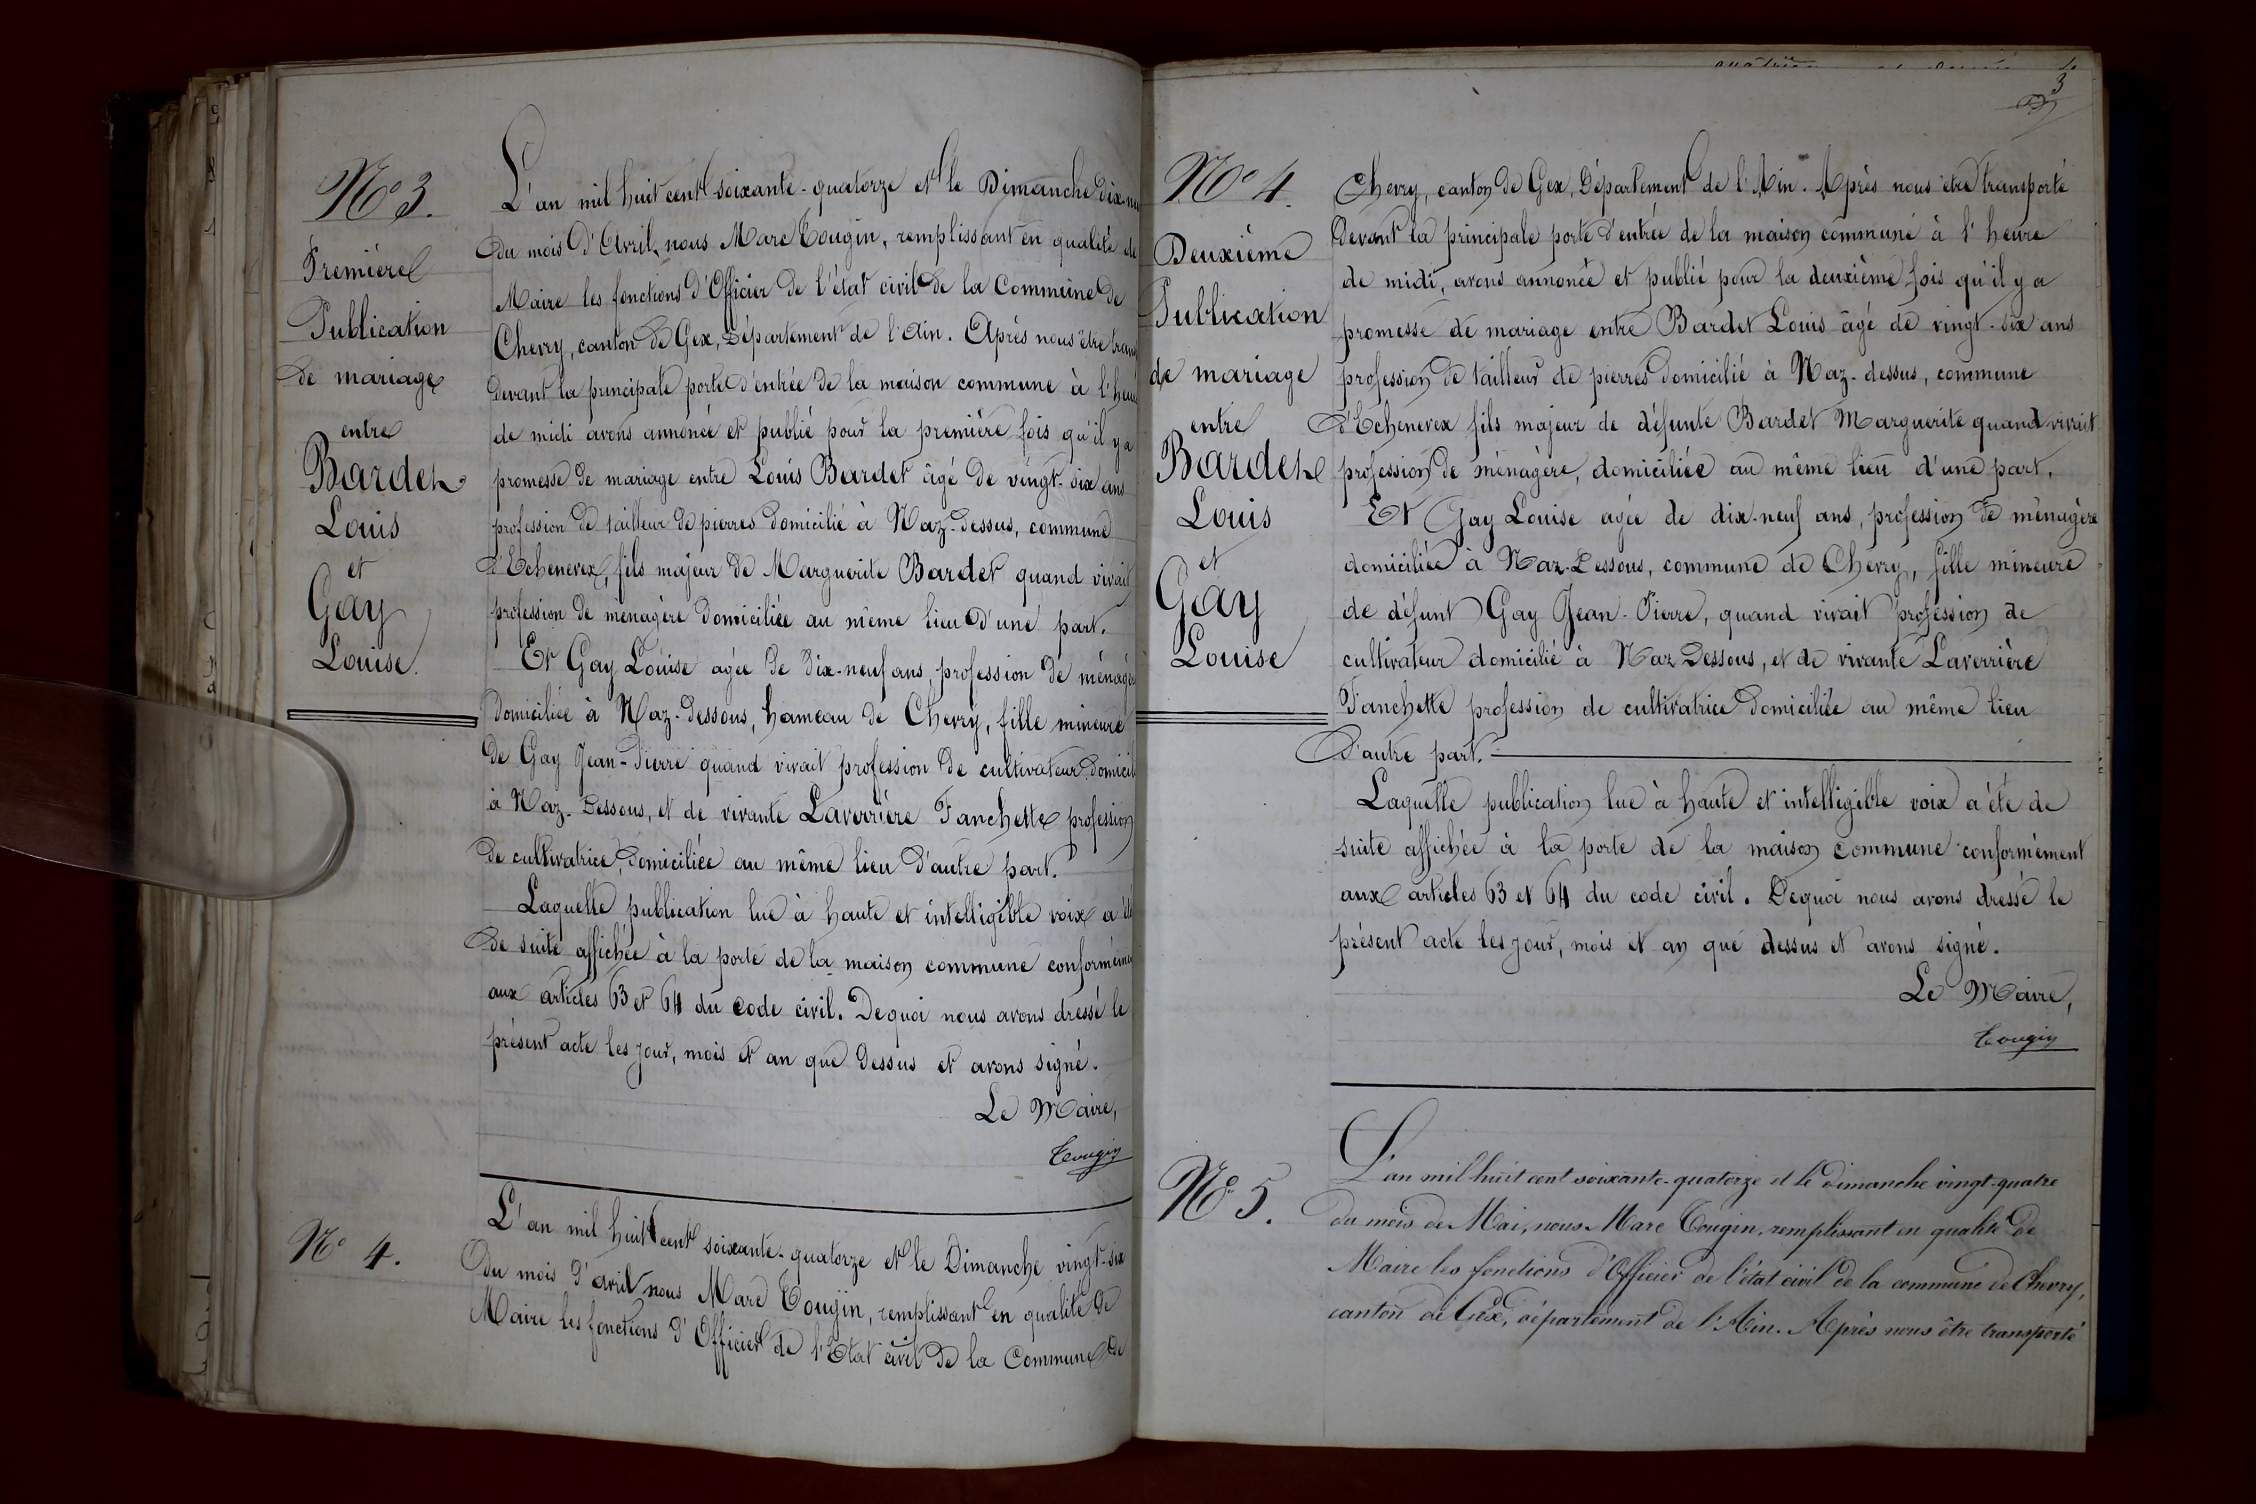 N° 3.
Première
Publication
de mariage
entre
Bardet
Louis
et
Gay
Louise.
L'an mil huit cent soixante-quatorze et le Dimanche dix-neu
du mois d'Avril, nous Marc Tougin, remplissant en qualité de
Maire les fonctions d'Officier de l'état civil de la Commune de
Chevry, canton de Gex, Département de l'Ain. Après nous être trans
devant la principale porte d'entrée de la maison commune à l'heu
de midi avons annoncé et publié pour la première fois qu'il y a
promesse de mariage entre Louis Bardet âgé de vingt-six ans
profession de tailleur de pierres domicilié à Naz-dessus, commune
d'Echenevex, fils majeur de Marguerite Bardet quand vivait
profession de ménagère domiciliée au même lieu d'une part.
Et Gay Louise agée de dix-neuf ans, profession de ménagè
domiciliée à Naz-dessous, hameau de Chevry, fille mineure
de Gay Jean-Pierre quand vivait profession de cultivateur domicil
à Naz-Dessous, et de vivante Laverrière Fanchette profession
de cultivatrice, domiciliée au même lieu d'autre part.
Laquelle publication lue à haute et intelligible voix a été
de suite affichée à la porte de la maison commune conforméme
aux articles 63 et 64 du code civil. De quoi nous avons dressé le
présent acte les jour, mois et an que dessus et avons signé.
Le Maire,
Tougin
N° 4.
L'an mil huit cent soixante-quatorze et le Dimanche vingt-six
du mois d'avril nous Marc Tougin, remplissant en qualité de
Maire les fonctions d'Officier de l'Etat civil de la Commune de
3
N° 4.
Deuxième
Publication
de mariage
entre
Bardet
Louis
et
Gay
Louise
Chevry, canton de Gex, Département de l'Ain. Après nous être transporté
devant la principale porte d'entrée de la maison commune à l'heure
de midi, avons annoncé et publié pour la deuxième fois qu'il y a
promesse de mariage entre Bardet Louis âgé de vingt-six ans
profession de tailleur de pierres domicilié à Naz-dessus, commune
d'Echenevex fils majeur de défunte Bardet Marguerite quand vivait
profession de ménagère, domiciliée au même lieu d'une part.
Et Gay Louise agée de dix-neuf ans, profession de ménagère
domiciliée à Naz-Dessous, commune de Chevry, fille mineure
de défunt Gay Jean-Pierre, quand vivait profession de
cultivateur domicilié à Naz Dessous, et de vivante Laverrière
Fanchette profession de cultivatrice domiciliée au même lieu
d'autre part.
Laquelle publication lue à haute et intelligible voix a été de
suite affichée à la porte de la maison commune conformément
aux articles 63 et 64 du code civil. De quoi nous avons dressé le
présent acte les jour, mois et an que dessus et avons signé.
Le Maire,
Tougin
N° 5.
L'an mil huit cent soixante-quatorze et le dimanche vingt-quatre
du mois de Mai, nous Marc Tougin, remplissant en qualité de
Maire les fonctions d'Officier de l'état civil de la commune de Chevry,
canton de Gex, département de l'Ain. Après nous être transporté